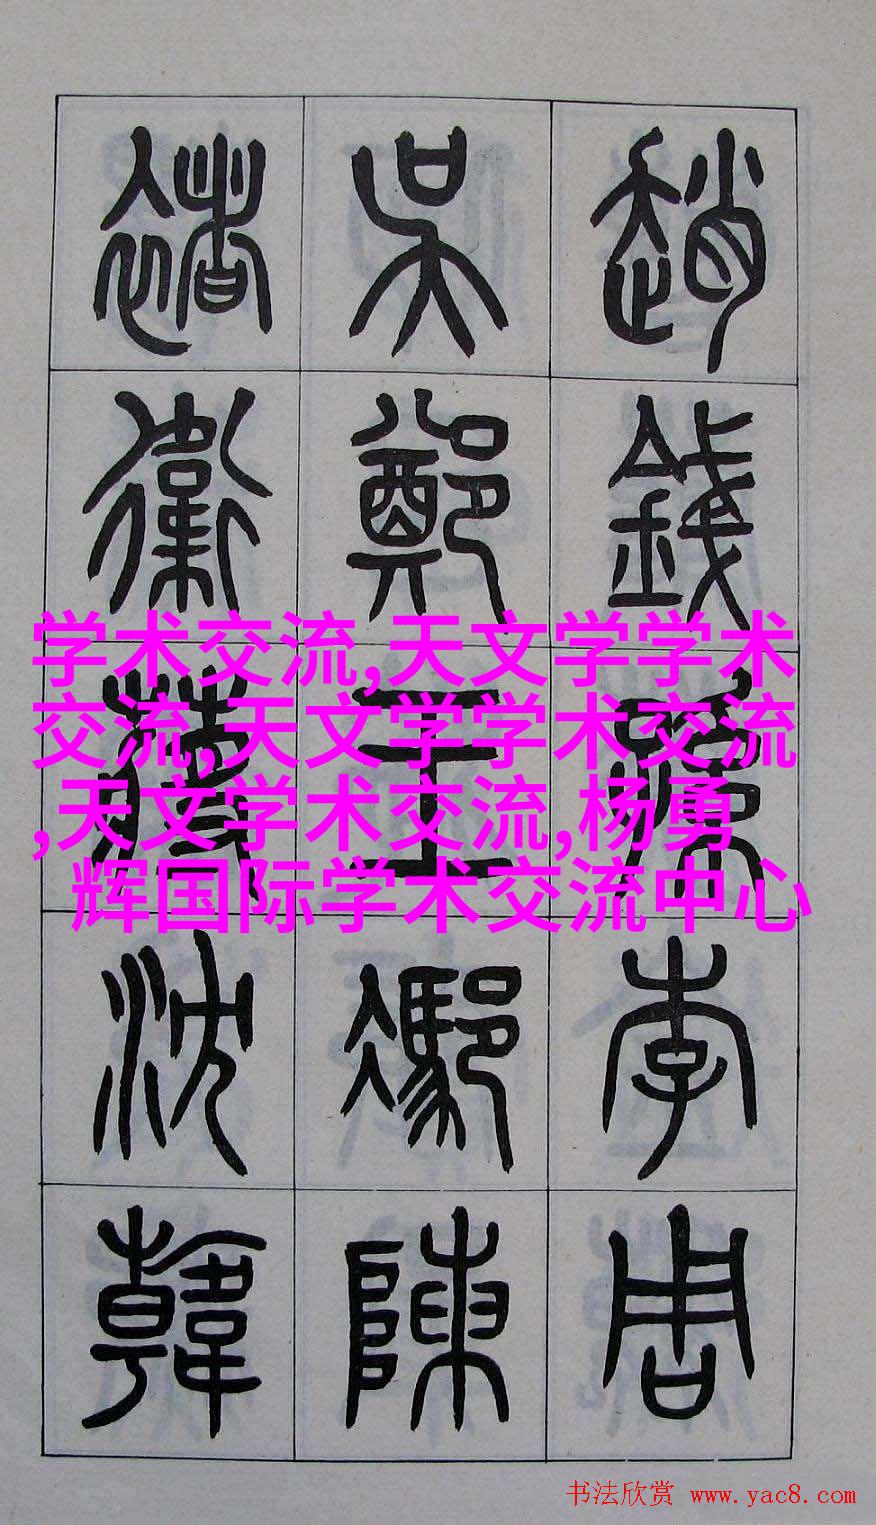 趙錢孫李周
吳鄭王馮陳
褚衛蔣沈韓
学术交流,天文学学术
交流,天文学学术交流
,天文学术交流,杨勇
辉国际学术交流中心
书法欣赏 www.yac8.com